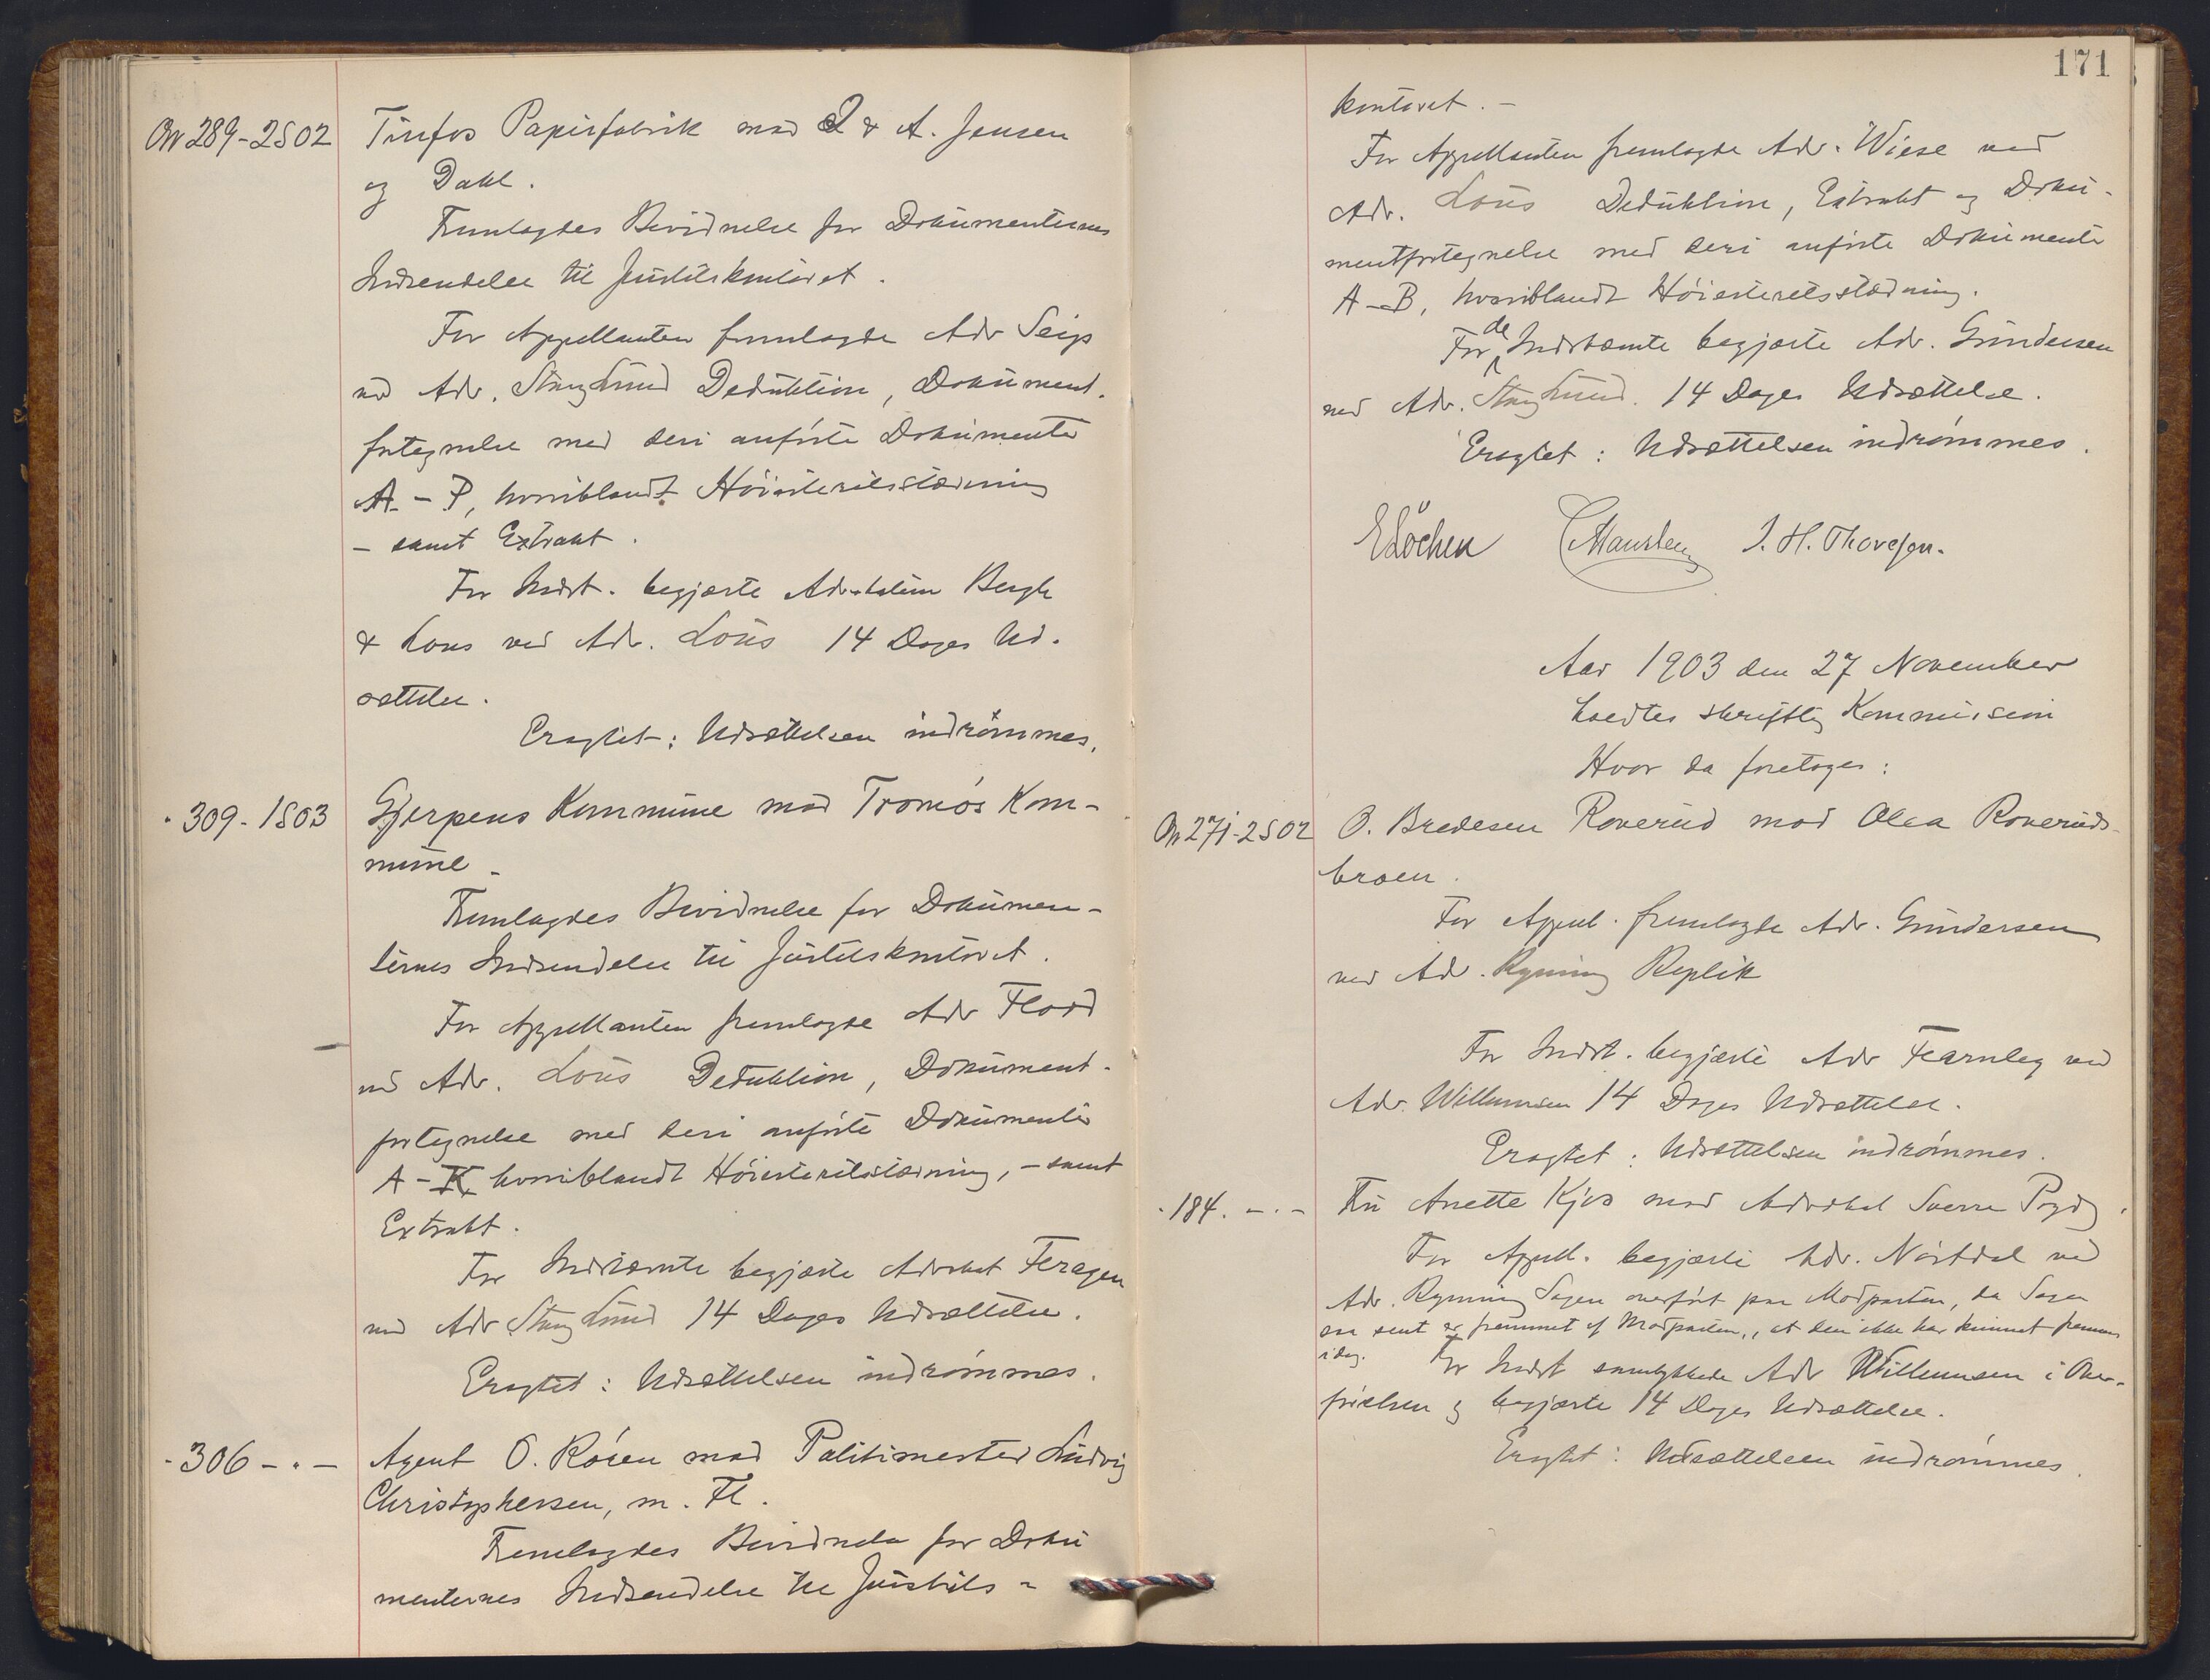 No 289-2S02 Tinfos Papirfabrik mod J & A. Jensen
og Dahl.
Fremlagdes Bevidnelse for Dokumenternes
Indsendelse til Justitskontoret.
For Appellanten fremlagde Adv Seip
ved Adv. Stang Lund Deduktion, Dokument-
fortegnelse med deri anførte Dokumenter
A - P, hvoriblandt Høiesteretsstævning
- samt Extrakt.
For Indst. begjærte Advokaterne Bergh
& Lous ved Adv. Lous 14 Dages Ud-
sættelse.
Eragtet: Udsættelsen indrømmes.
" 309-1S03 Gjerpens Kommune mod Tromøs Kom-
mune -
Fremlagdes Bevidnelse for Dokumen-
ternes Indsendelse til Justitskontoret.
For Appellanten fremlagde Adv Flood
ved Adv. Lous Deduktion, Dokument-
fortegnelse med deri anførte Dokumenter
A - K, hvoriblandt Høiesteretsstævning, - samt
Extrakt.
For Indstævnte begjærte Advokat Feragen
ved Adv Stang Lund 14 Dages Udsættelse.
Eragtet: Udsættelsen indrømmes.
" 306 - " - Agent O. Rosen mod Politimester Ludvig
Christophersen, m. Fl.
Fremlagdes Bevidnelse for Doku
menternes Indsendelse til Justits-
171
kontoret. -
For Appellanten fremlagde Adv. Wiese ved
Adv. Lous Deduktion, Extrakt og Doku-
mentfortegnelse med deri anførte Dokumenter
A - B, hvoriblandt Høiesteretsstævning.
For de Indstævnte begjærte Adv. Gundersen
ved Adv. Stang Lund. 14 Dages Udsættelse.
Eragtet: Udsættelsen indrømmes.
E Løchen J. H. Thoresen.
Aar 1903 den 27 November
holdtes skriftlig Kommission
Hvor da foretoges:
No 271-2S02 O. Bredesen Roverud mod Olea Roveruds-
braen.
For Appel. fremlagde Adv. Gundersen
ved Adv. Rynning Replik
For Indst. begjærte Adv Fearnley ved
Adv. Willumsen 14 Dages Udsættelse.
Eragtet: Udsættelsen indrømmes.
" 184. - " - Fru Anette Kjøs mod Advokat Sverre
For Appell. begjærte Adv. Nørdal ved
Adv. Rynning Sagen overført paa Modparten, da Sagen
saa sent er fremmet af Modparten, at den ikke har kunnet fremmes
idag. For Indst samtykkede Adv Willumsen i Over-
førelsen og begjærte 14 Dages Udsættelse.
Eragtet: Udsættelsen indrømmes.